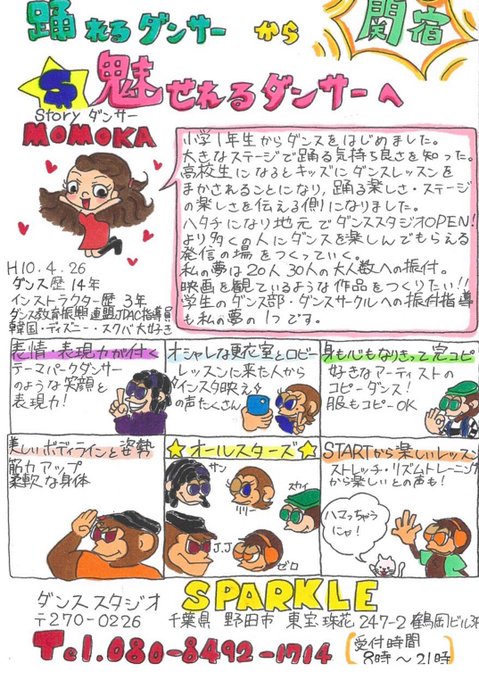 踊れるダンサーから
関宿
S 魅せれるダンサーへ
Story ダンサー
MOMOKA
小学1年生からダンスをはじめました。
大きなステージで踊る気持ち良さを知った。
高校生になるとキッズにダンスレッスンを
まかされることになり、踊る楽しさ・ステージ
の楽しさを伝える側になりました。
ハタチになり地元でダンススタジオOPEN!
より多くの人にダンスを楽しんでもらえる
発信の場をつくっていく。
私の夢は20人30人の大人数への振付。
映画を観ているような作品をつくりたい!!
学生のダンス部・ダンスサークルへの振付指導
も私の夢の1つです。
H10.4.26
ダンス歴 14年
インストラクター歴 3年
ダンス教育振興連盟JDAC指導員
韓国・ディズニー・スタバ大好き
表情・表現力が付く
テーマパークダンサー
のような笑顔と
表現力!
オシャレな更衣室とロビー
レッスンに来た人から
インスタ映え
の声たくさん
身も心もなりきって完コピ
好きなアーティストの
コピーダンス!
服もコピーOK
美しいボディラインと姿勢
筋力アップ
柔軟な身体
★オールスターズ★
サン
リリー
スカイ
J.J
ゼロ
STARTから楽しいレッスン
ストレッチ・リズムトレーニング
から楽しいとの声も!
ハマっちゃう
にゃ!
SPARKLE
ダンススタジオ
〒270-0226
千葉県 野田市 東宝珠花247-2 鶴岡ビル
Tel.080-8492-1714
受付時間
8時～21時